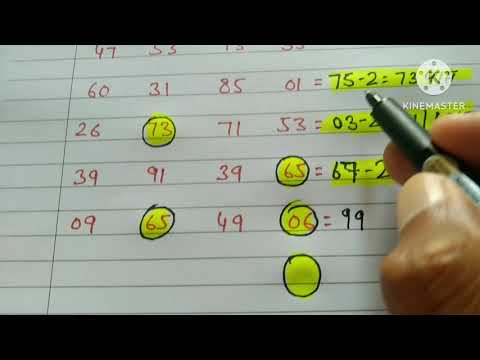 47 53 73 55
60 31 85 01 = 75-2 = 73
26 73 71 53 = 03-2
39 91 39 65 = 67-2
09 65 49 06 = 99
K
KINEMASTER